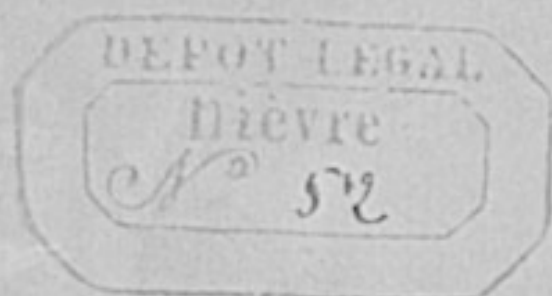 DEPOT LEGAL
Nièvre
N° 52